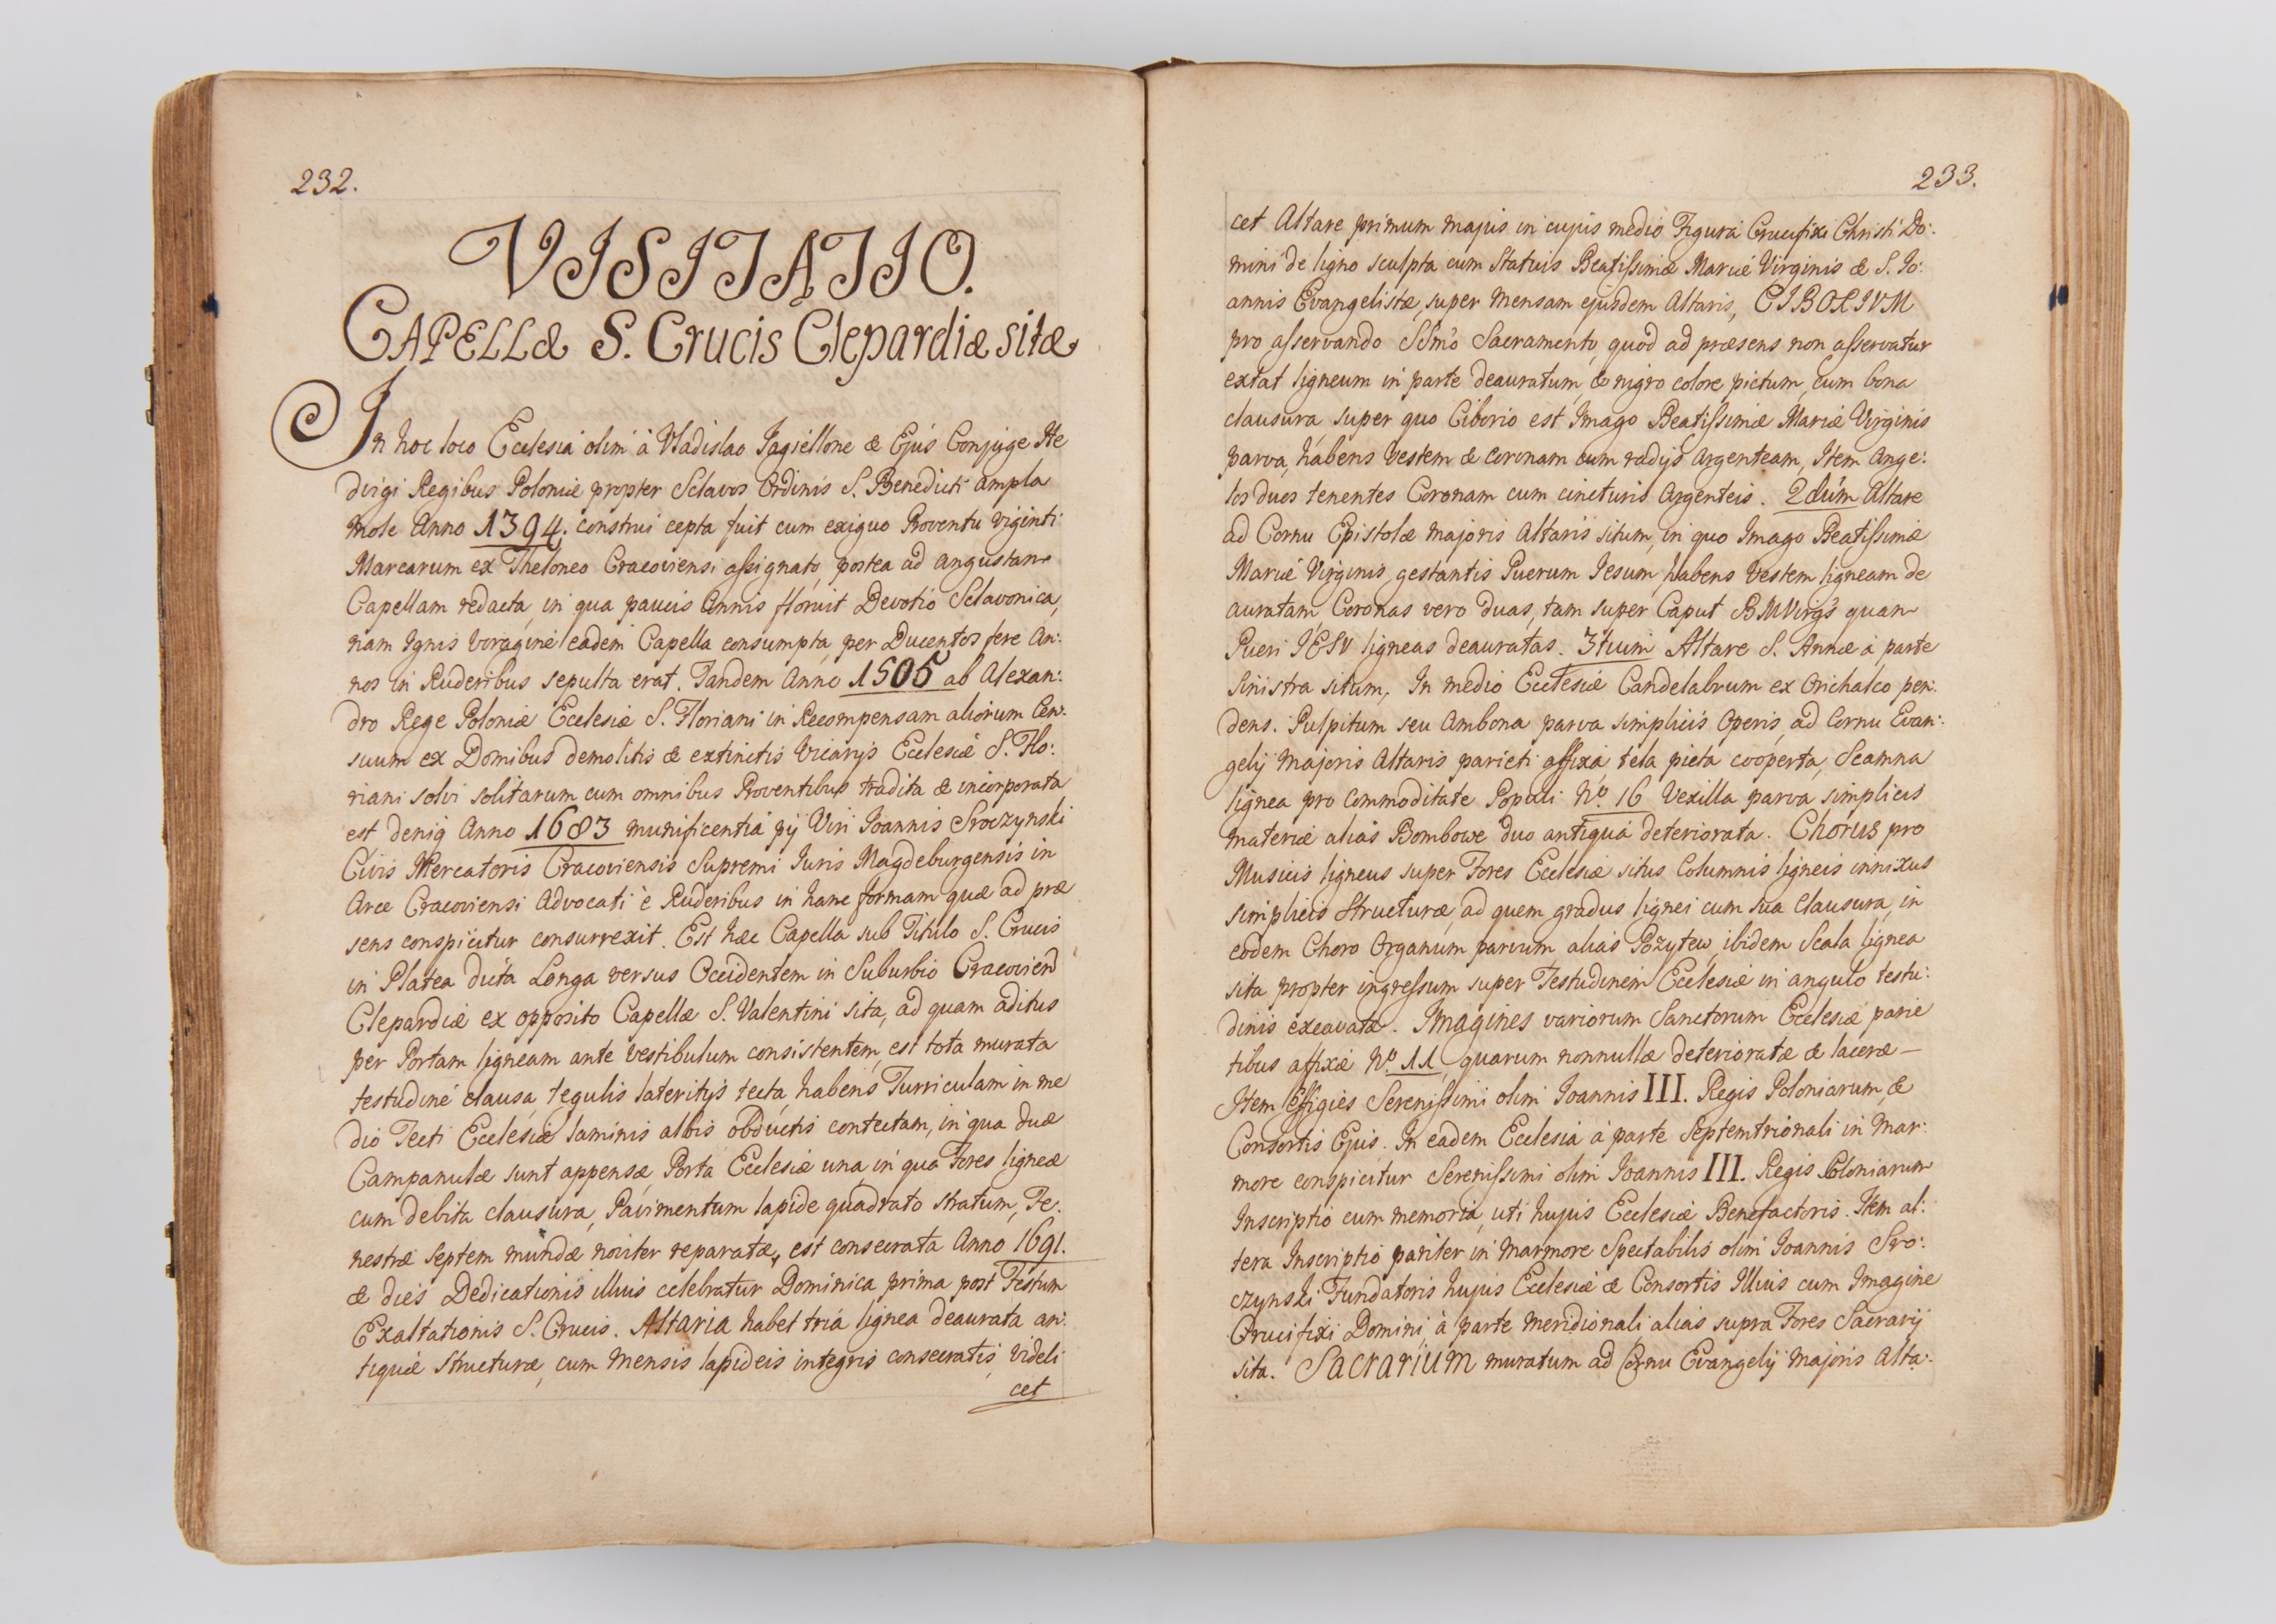 232.
VISITATIO.
CAPELLÆ S. Crucis Clepardiæ sitæ
In hoc loco Ecclesia olim à Vladislao Jagiellone & Ejus Conjuge He
dvigi Regibus Poloniæ propter Sclavos Ordinis S. Benedicti ampla
mole Anno 1394. construi cepta fuit cum exiguo Proventu viginti
Marcarum ex Theloneo Cracoviensi assignato, postea ad angustam
Capellam redacta, in qua paucis Annis floruit Devotio Sclavonica,
nam Ignis voragine eadem Capella consumpta, per Ducentos fere An:
nos in Ruderibus sepulta erat. Tandem Anno 1505 ab Alexan:
dro Rege Poloniæ Ecclesiæ S. Floriani in Recompensam aliorum Cen:
suum ex Domibus demolitis & extinctis Vicarijs Ecclesiæ S. Flo:
riani solvi solitarum cum omnibus Proventibus tradita & incorporata
est, deniq Anno 1683 munificentiâ pij Viri Joannis Sroczynski
Civis Mercatoris Cracoviensis Supremi Juris Magdeburgensis in
Arce Cracoviensi Advocati è Ruderibus in hanc formam quæ ad præ
sens conspicitur consurrexit. Est hæc Capella sub Titulo S. Crucis
in Platea dicta Longa versus Occidentem in Suburbio Cracovien
Clepardiæ ex opposito Capellæ S. Valentini sita, ad quam aditus
per Portam ligneam ante vestibulum consistentem, est tota murata
testudine clausa, tegulis lateritijs tecta, habens Turriculam in me
dio Tecti Ecclesiæ laminis albis obductis contectam, in qua duæ
Campanulæ sunt appensæ, Porta Ecclesiæ una, in qua Fores ligneæ
cum debita clausura, Pavimentum lapide quadrato stratum, Fe:
nestræ septem mundæ noviter reparatæ, est consecrata Anno 1691.
& dies Dedicationis illius celebratur Dominica prima post Festum
Exaltationis S. Crucis. Altaria habet tria lignea deaurata an:
tiquæ structuræ, cum Mensis lapideis integris consecratis, videli
cet
233.
cet Altare primum majus in cujus medio Figura Crucifixi Christi Do:
mini de ligno sculpta cum Statuis Beatissimæ Mariæ Virginis & S. Jo:
annis Evangelistæ, super Mensam ejusdem Altaris, CIBORIVM
pro asservando SSmo Sacramento, quod ad præsens non asservatur
extat ligneum in parte deauratum, & nigro colore pictum, cum bona
clausura, super quo Ciborio est Imago Beatissimæ Mariæ Virginis
parva, habens vestem & coronam cum radijs argenteam, Item Ange:
los duos tenentes Coronam cum cincturis Argenteis. 2dum Altare
ad Cornu Epistolæ majoris Altaris situm, in quo Imago Beatissimæ
Mariæ Virginis, gestantis Puerum Jesum, habens vestem ligneam de
auratam, Coronas vero duas, tam super Caput BMVirgs quam
Pueri IESV ligneas deauratas. 3tium Altare S. Annæ à parte
sinistra situm, In medio Ecclesiæ Candelabrum ex Orichalco pen:
dens. Pulpitum seu Ambona parva simplicis Operis, ad Cornu Evan:
gelij Majoris Altaris parieti affixa tela picta cooperta, Scamna
lignea pro Commoditate Populi No. 16 Vexilla parva simplicis
materiæ alias Bombowe duo antiqua deteriorata. Chorus pro
Musicis ligneus super Fores Ecclesiæ situs Columnis ligneis innixus
simplicis structuræ, ad quem gradus lignei cum sua clausura, in
eodem Choro Organum parvum, alias Pozytew, ibidem Scala lignea
sita propter ingressum super Testudinem Ecclesiæ in angulo testu:
dinis excavata. Imagines variorum Sanctorum Ecclesiæ parie
tibus affixæ No. 11, quarum nonnullæ deterioratæ & laceræ —
Item Effigies Serenissimi olim Joannis III. Regis Poloniarum, &
Consortis Ejus. In eadem Ecclesia à parte Septemtrionali in Mar:
more conspicitur Serenissimi olim Joannis III. Regis Poloniarum
Inscriptio cum memoria, uti hujus Ecclesiæ Benefactoris. Item al:
tera Inscriptio pariter in Marmore Spectabilis olim Joannis Sro:
czynski Fundatoris hujus Ecclesiæ & Consortis Illius cum Imagine
Crucifixi Domini, à parte meridionali, alias supra Fores Sacrarij
sita. Sacrarium muratum ad Cornu Evangelij Majoris Alta: